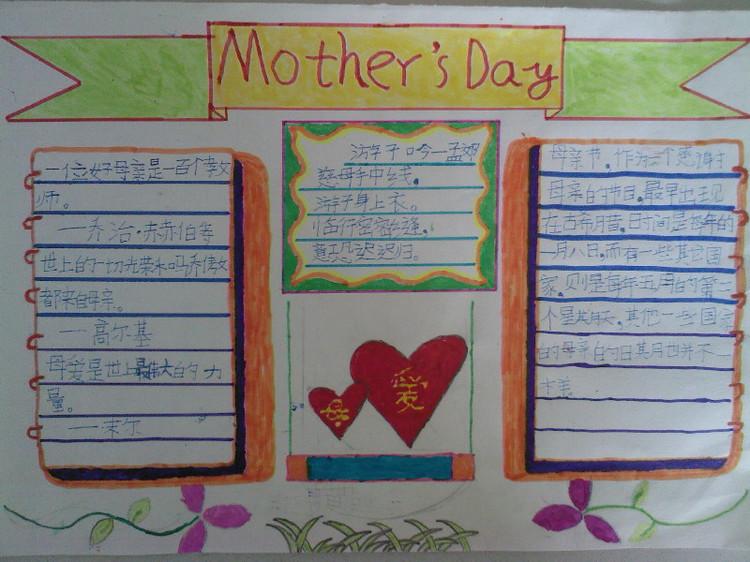 Mother's Day
一位好母亲是一百个教
师。
——乔治·赫赫伯等
世上的一切光荣和吗乔傲
都来自母亲。
——高尔基
母爱是世上最伟大的力
量。
——末尔
游子子口今—孟郊
慈母手中线,
游子身上衣。
临行密密缝,
意恐迟迟归。
母爱
母亲节,作为一个感谢
母亲的节日,最早出现
在古希月昔,日时间是每年的
一月八日,而有一些其它国
家,则是每年五月的第二
个星其月天,其他一些国家
的母亲的日其月也并不一